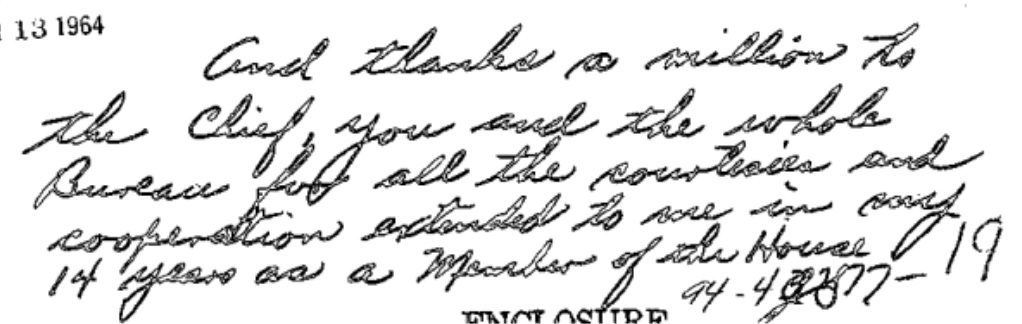 13 1964
And thanks a million to
the Chief, you and the whole
Bureau for all the courtesies and
cooperation extended to me in my
14 years as a Member of the House
94-4 77-19
ENCLOSURE